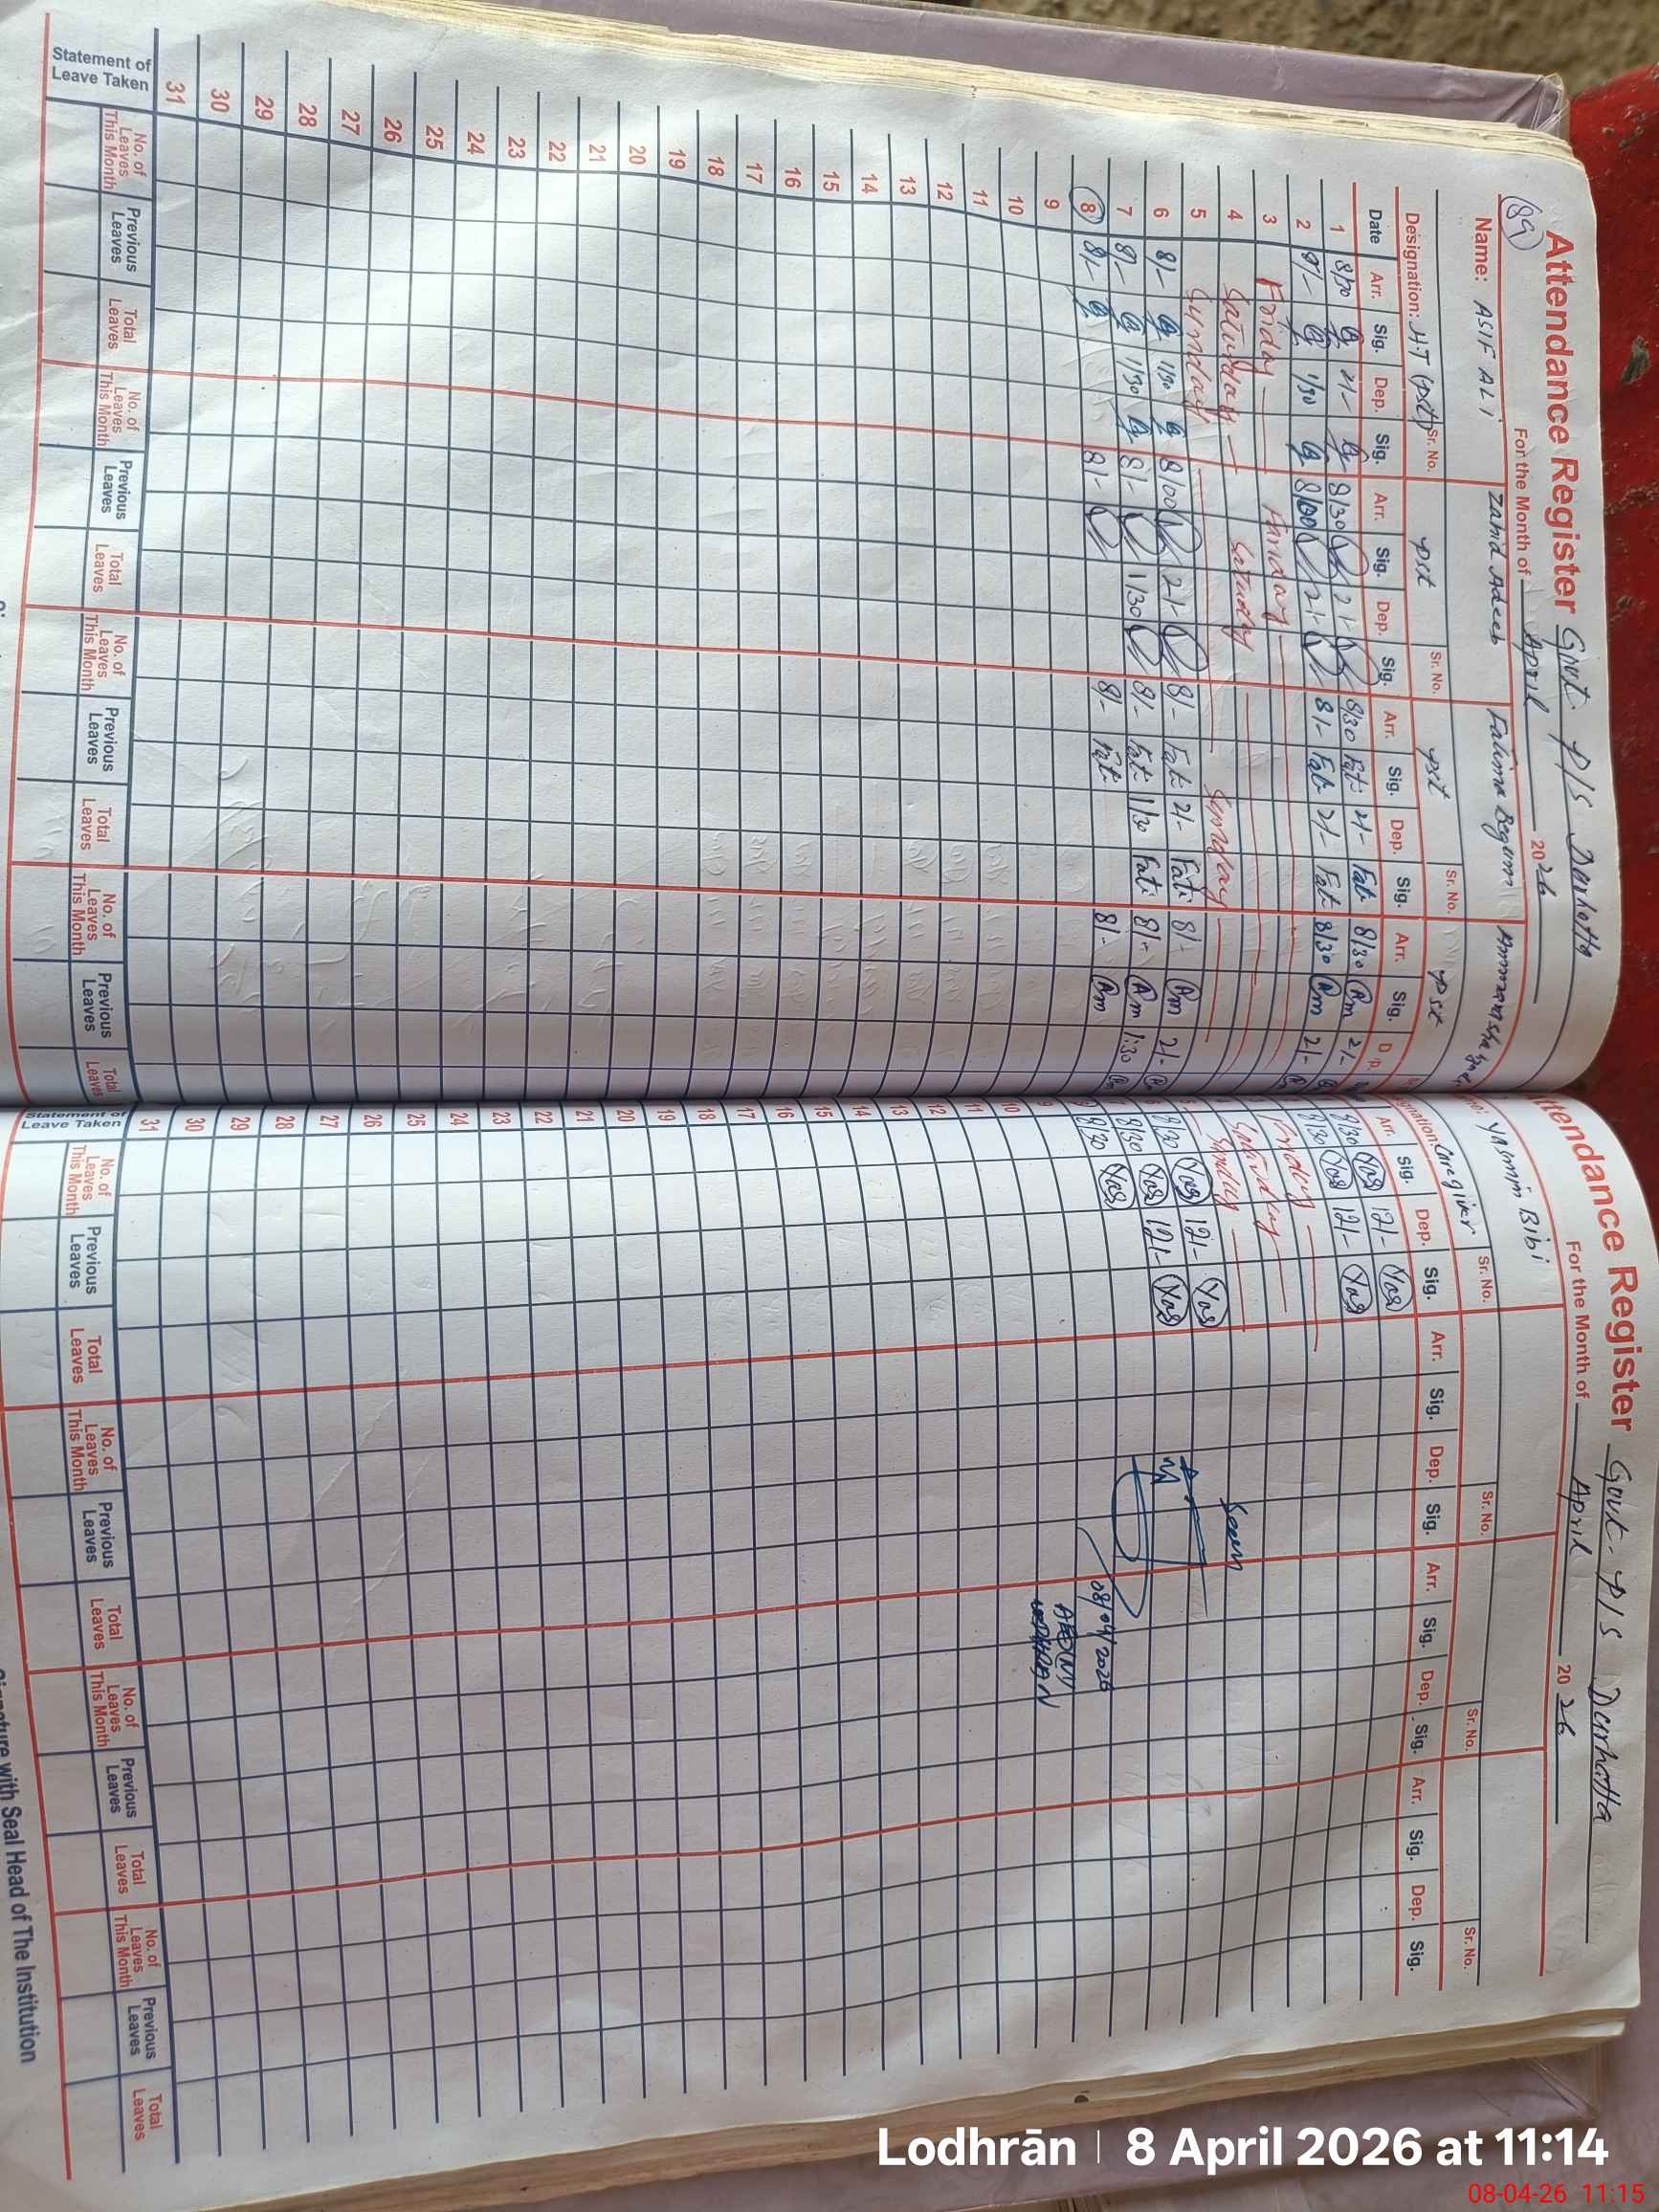 89
Attendance Register Govt. P/S Durhatta
For the Month of April 2026
Name: ASIF ALI Zahid Adeeb Fatima Begum
Designation: H.T (PST) Sr. No. PST Sr. No. PST Sr. No. PST
Date Arr. Sig. Dep. Sig. Arr. Sig. Dep. Sig. Arr. Sig. Dep. Sig. Arr. Sig. D p.
1 8/30 2/- 8/30 2/- 8/30 Fat: 2/- Fat 8/30 Am 2/-
2 8/- 1/30 8/00 2/- 8/- Fat 2/- Fat 8/30 Am 2/-
3 Friday
4 Saturday
5 Sunday Sunday
6 8/- 1/30 8/00 2/- 8/- Fat: 2/- Fati 8/- Am 2/-
7 8/- 1/30 8/- 1/30 8/- Fat: 1/30 Fati 8/- Am 1:30
8 8/- 8/- 8/- Fat: 8/- Am
9
10
11
12
13
14
15
16
17
18
19
20
21
22
23
24
25
26
27
28
29
30
31
Statement of Leave Taken
No. of Leaves This Month Previous Leaves Total Leaves No. of Leaves This Month Previous Leaves Total Leaves No. of Leaves This Month Previous Leaves Total Leaves No. of Leaves This Month Previous Leaves Total Leaves
ttendance Register Govt. P/S Durhatta
For the Month of April 2026
me: Yasmin Bibi
ignation: Caregiver Sr. No. Sr. No. Sr. No. Sr. No.
Arr. Sig. Dep. Sig. Arr. Sig. Dep. Sig. Arr. Sig. Dep. Sig. Arr. Sig. Dep. Sig.
8/30 Yas 12/- Yas
8/30 Yas 12/- Yas
Saturday
8/30 Yas 12/- Yas
8/30 Yas 12/- Yas
8/30 Yas
Seen
08/04/2026
LODHRAN
9
10
11
12
13
14
15
16
17
18
19
20
21
22
23
24
25
26
27
28
29
30
31
Statement of Leave Taken
No. of Leaves This Month Previous Leaves Total Leaves No. of Leaves This Month Previous Leaves Total Leaves No. of Leaves This Month Previous Leaves Total Leaves No. of Leaves This Month Previous Leaves Total Leaves
ignature with Seal Head of The Institution
Lodhrān | 8 April 2026 at 11:14
08-04-26 11:15